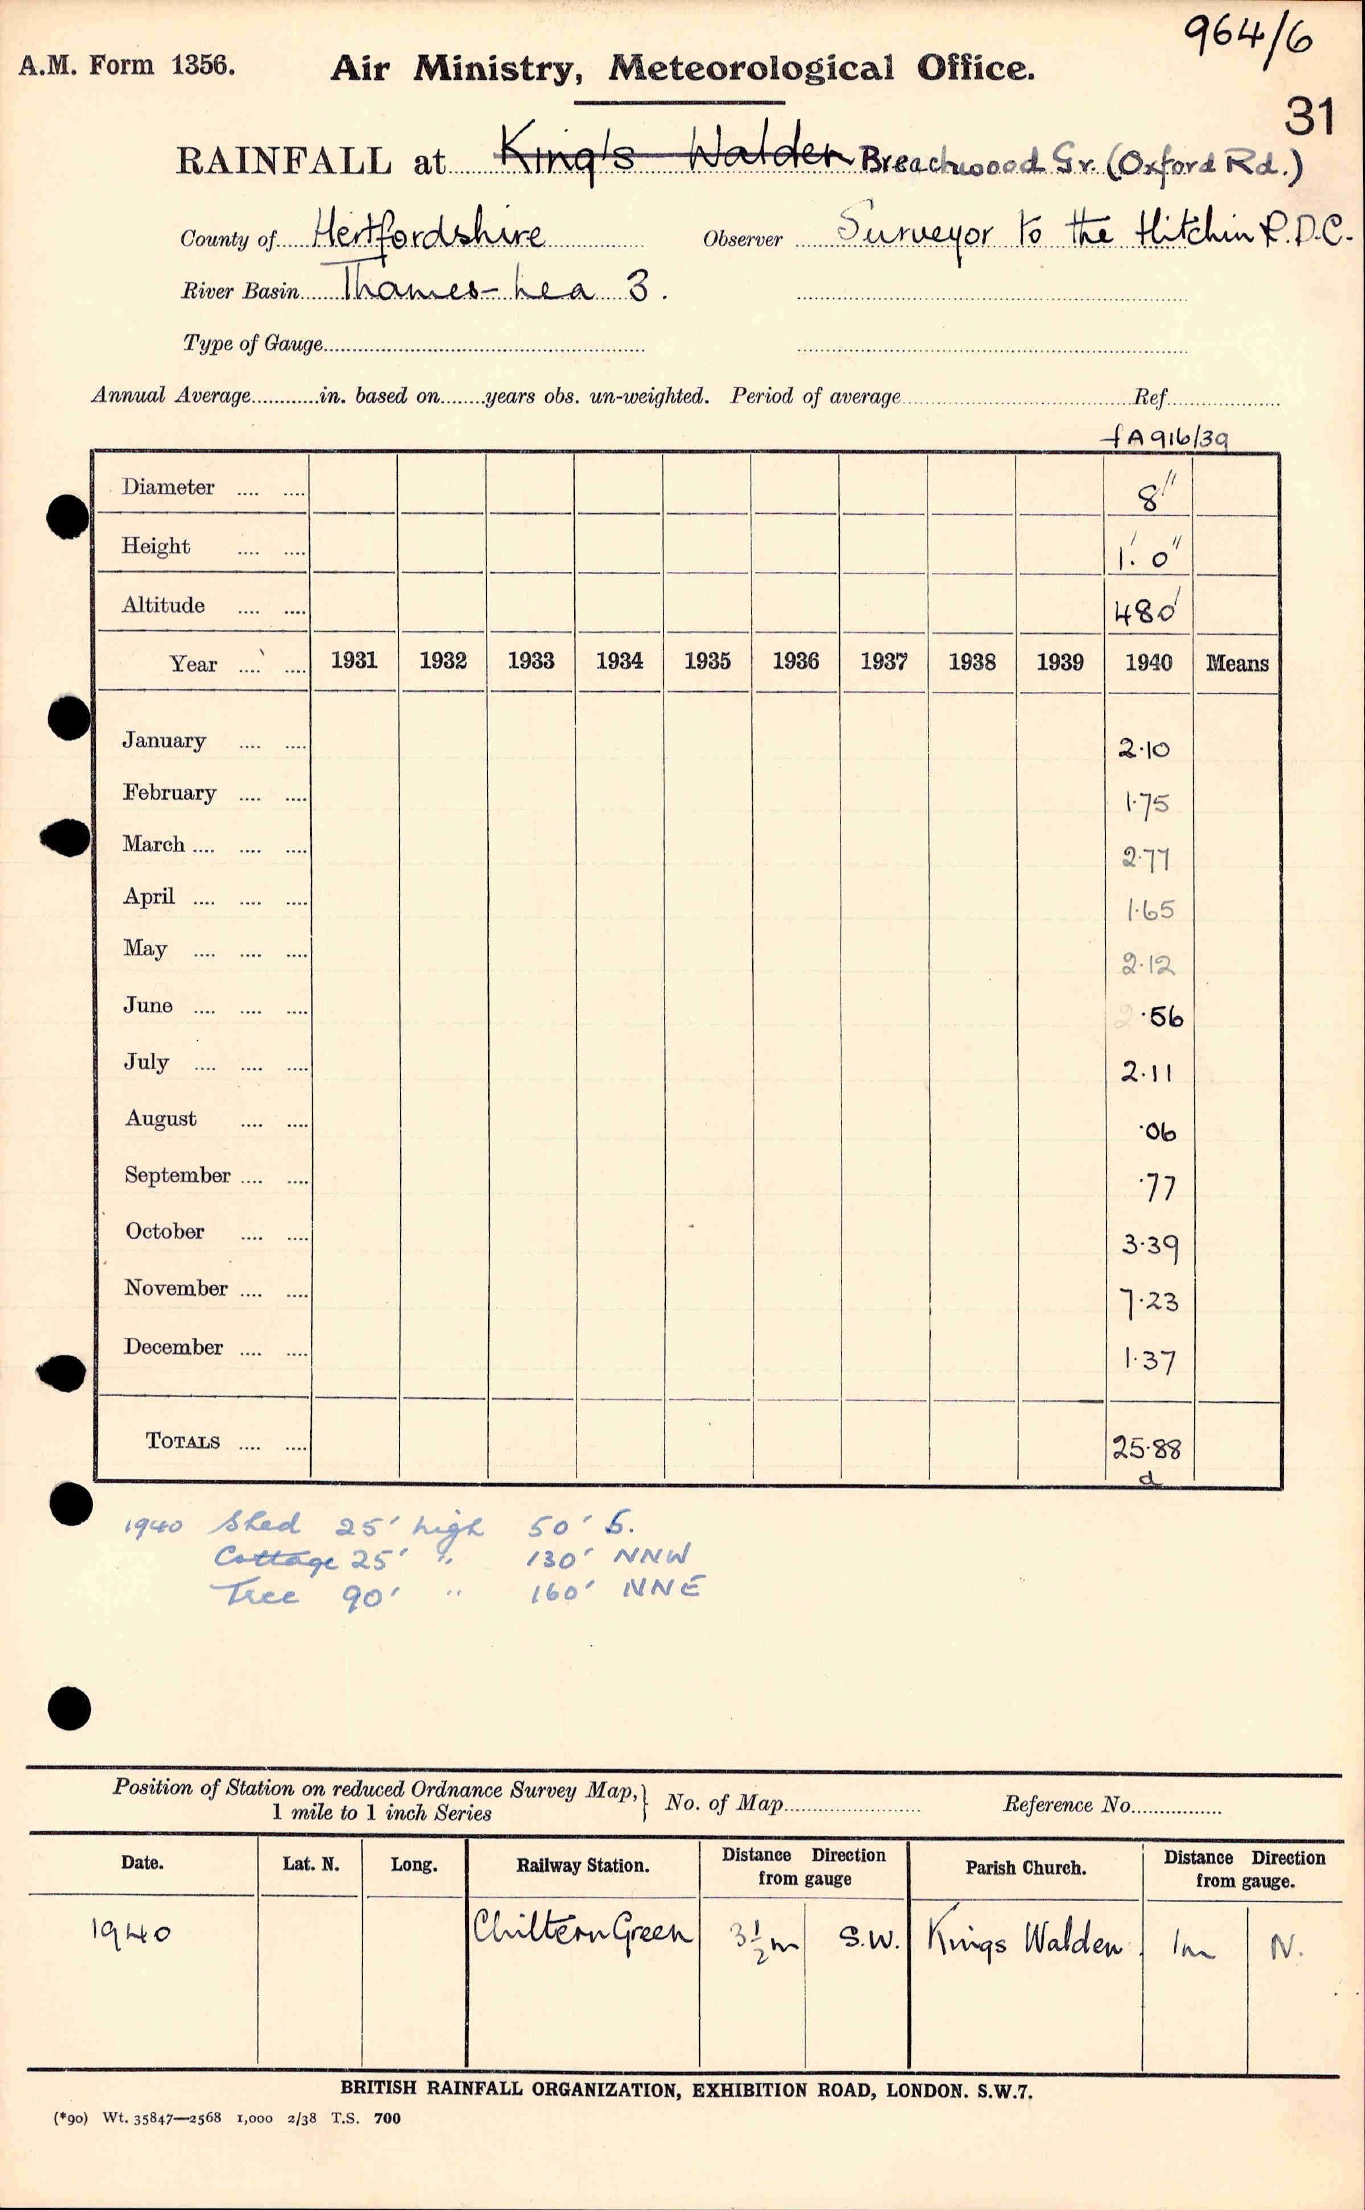 964/6
A.M. Form 1356. Air Ministry, Meteorological Office.
31
RAINFALL at King's Walden Breachwood Gr. (Oxford Rd.)
County of Hertfordshire Observer Surveyor to the Hitchin R.D.C.
River Basin Thames-Lea 3.
Type of Gauge
Annual Average in. based on years obs. un-weighted. Period of average Ref.
fA916/39
Diameter 8"
Height 1'. 0"
Altitude 480'
Year 1931 1932 1933 1934 1935 1936 1937 1938 1939 1940 Means
January 2·10
February 1·75
March 2·77
April 1·65
May 2·12
June ·56
July 2·11
August ·06
September ·77
October 3·39
November 7·23
December 1·37
TOTALS 25·88
d
1940 Shed 25' high 50' S.
Cottage 25' " 130' NNW
Tree 90' " 160' NNE
Position of Station on reduced Ordnance Survey Map, 1 mile to 1 inch Series } No. of Map Reference No.
Date. Lat. N. Long. Railway Station. Distance Direction from gauge Parish Church. Distance Direction from gauge.
1940 Chiltern Green 3½m S.W. Kings Walden 1m N.
BRITISH RAINFALL ORGANIZATION, EXHIBITION ROAD, LONDON. S.W.7.
(*90) Wt. 35847—2568 1,000 2/38 T.S. 700